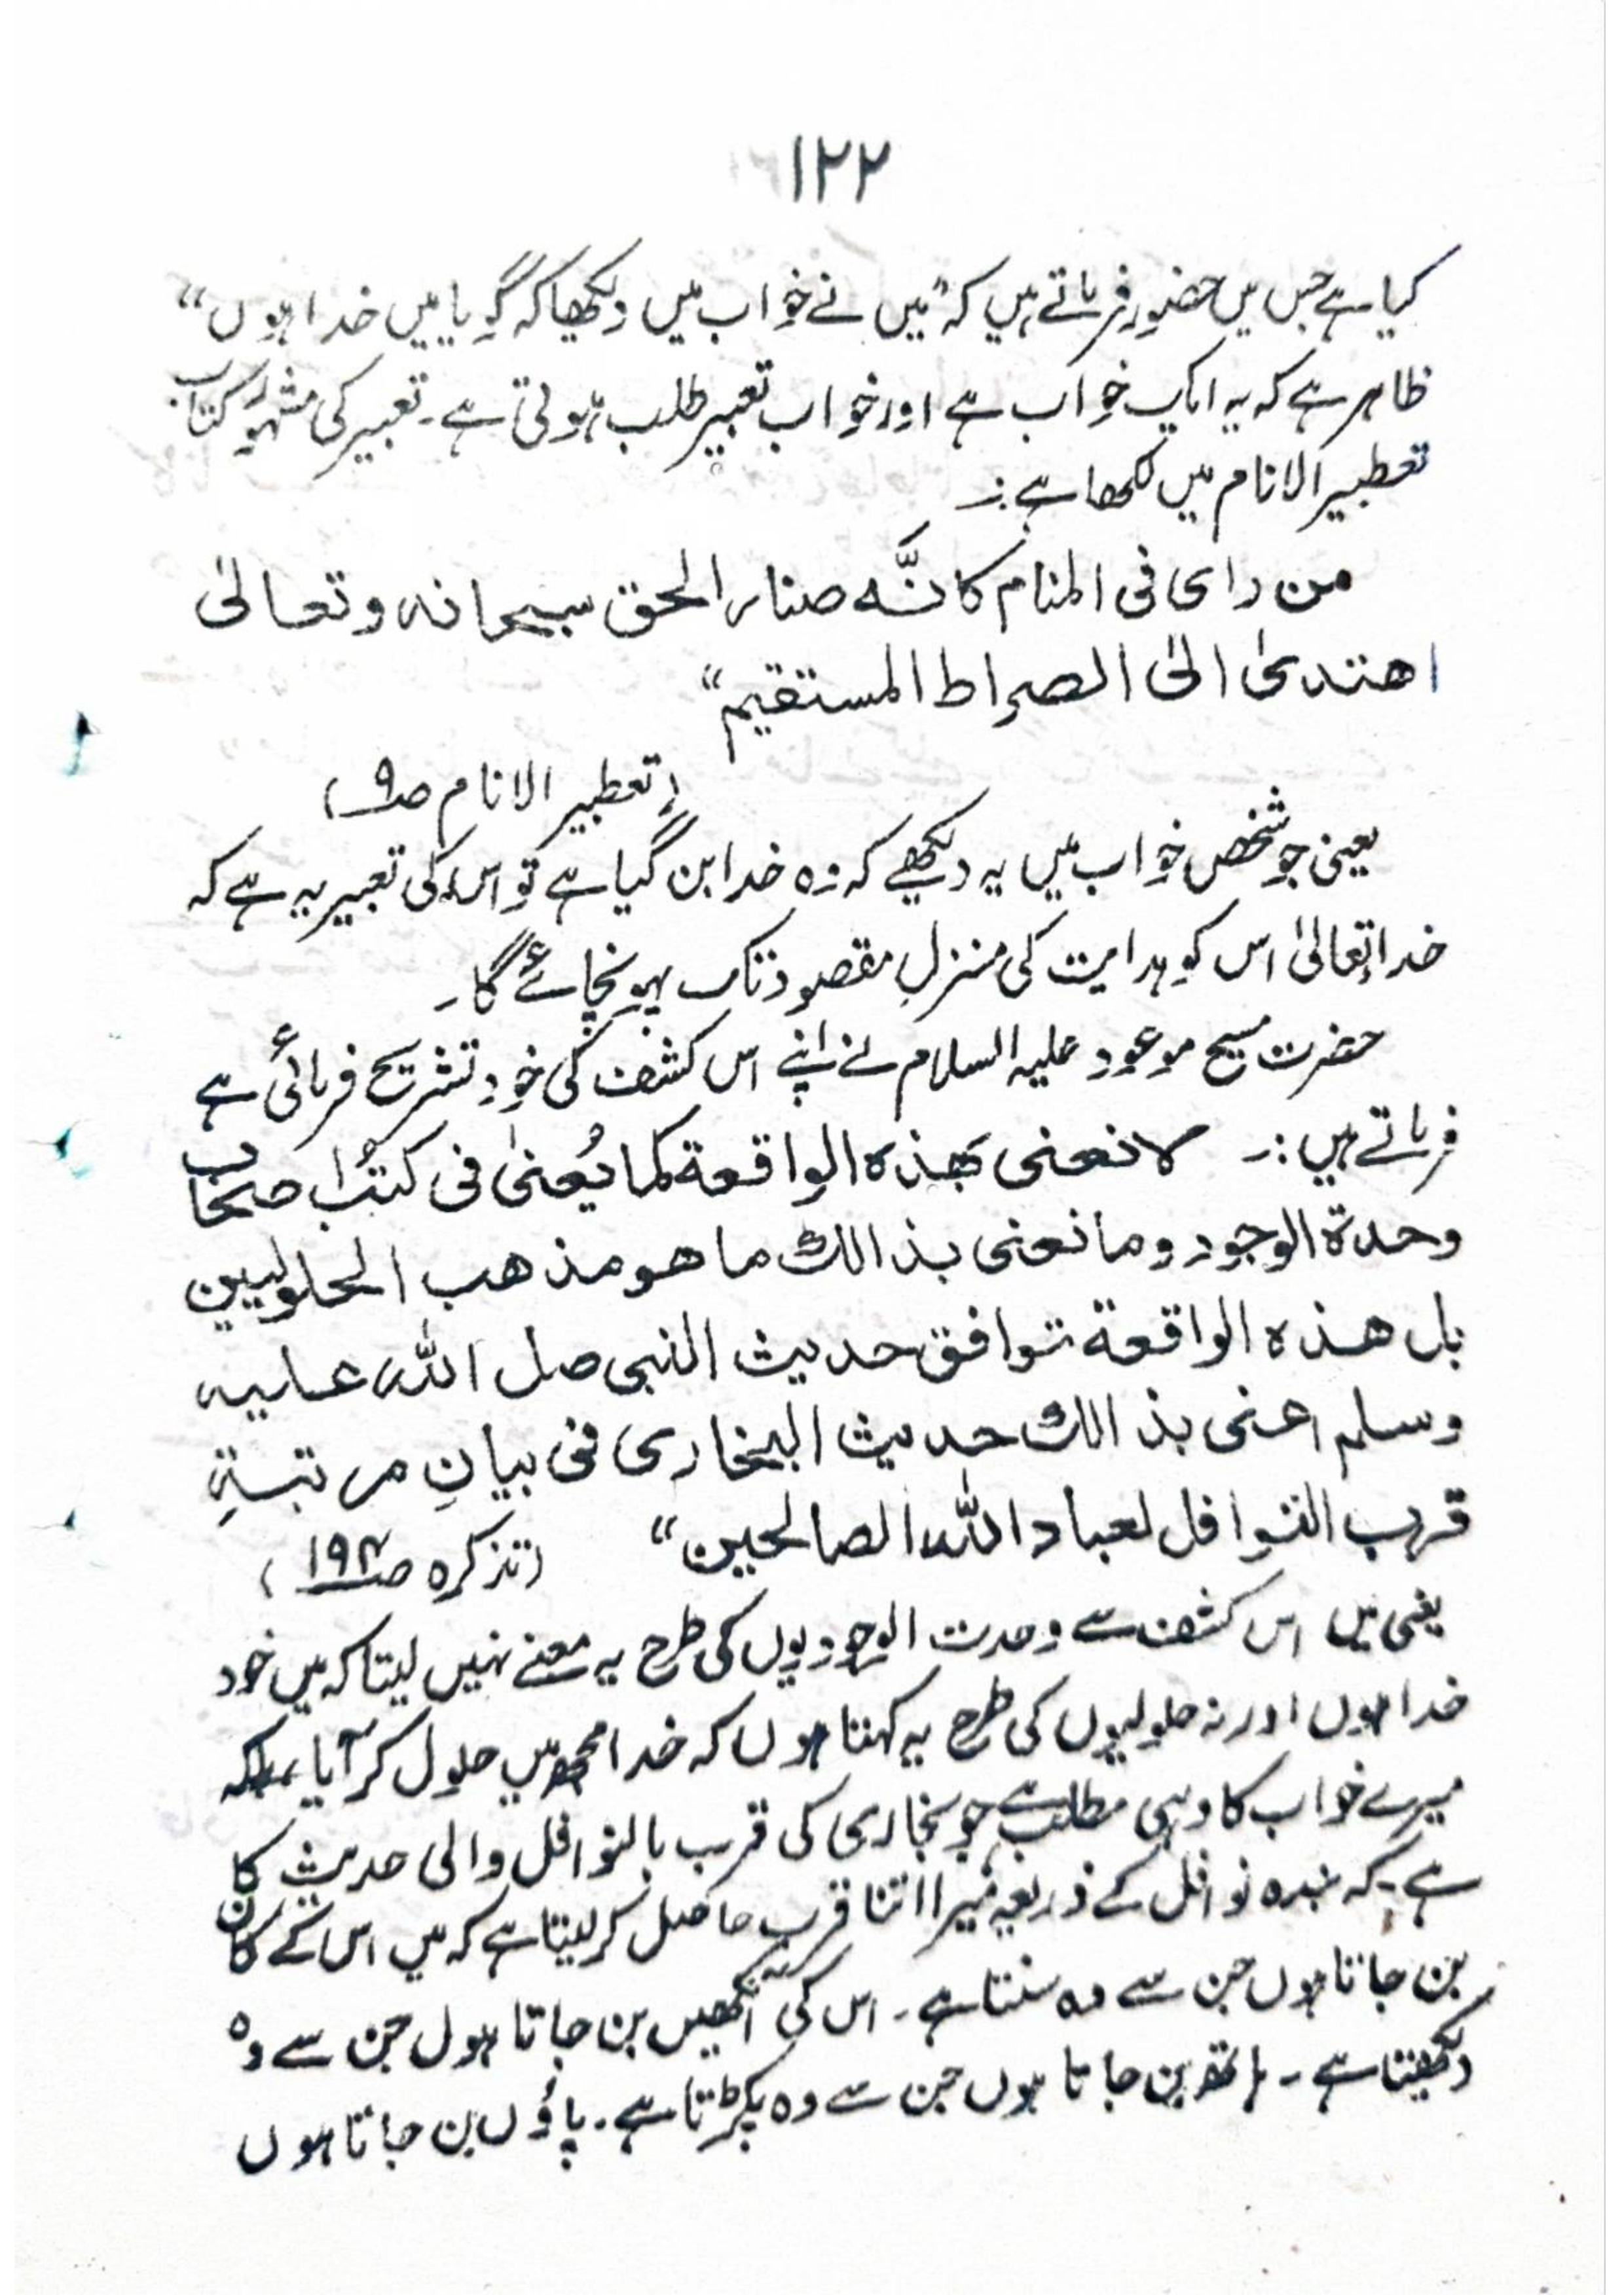 ۱۲۲
کیا ہے جس میں حضور فرماتے ہیں کہ "میں نے خواب میں دیکھا کہ گویا میں خدا ہوں"
ظاہر ہے کہ یہ ایک خواب ہے اور خواب تعبیر طلب ہوتی ہے۔ تعبیر کی مشہور کتاب
تعطیر الانام میں لکھا ہے :۔
من رای فی المنام کانَّہ صار الحق سبحانہ وتعالیٰ
اھتدیٰ الیٰ الصراط المستقیم"
(تعطیر الانام ص۹)
یعنی جو شخص خواب میں یہ دیکھے کہ وہ خدا بن گیا ہے تو اس کی تعبیر یہ ہے کہ
خدا تعالیٰ اس کو ہدایت کی منزلِ مقصود تک پہونچائے گا۔
حضرت مسیح موعود علیہ السلام نے اپنے اس کشف کی خود تشریح فرمائی ہے
فرماتے ہیں :۔ لا نعنی بھذہ الواقعة کما یُعنیٰ فی کتب اصحاب
وحدة الوجود وما نعنی بذالک ما ھو مذھب الحلولیین
بل ھذہ الواقعة توافق حدیث النبی صل اللہ علیہ
وسلم اعنی بذالک حدیث البخاری فی بیانِ مرتبةِ
قرب النوافل لعباد اللہ الصالحین" (تذکرہ ص۱۹۴)
یعنی میں اس کشف سے وحدت الوجودیوں کی طرح یہ معنے نہیں لیتا کہ میں خود
خدا ہوں اور نہ حلولیوں کی طرح یہ کہتا ہوں کہ خدا مجھ میں حلول کر آیا، بلکہ
میرے خواب کا وہی مطلب ہے جو بخاری کی قرب بالنوافل والی حدیث کا
ہے۔ کہ بندہ نوافل کے ذریعہ میرا اتنا قرب حاصل کر لیتا ہے کہ میں اس کے کان
بن جاتا ہوں جن سے وہ سنتا ہے۔ اس کی آنکھیں بن جاتا ہوں جن سے وہ
دیکھتا ہے۔ ہاتھ بن جاتا ہوں جن سے وہ پکڑتا ہے۔ پاؤں بن جاتا ہوں